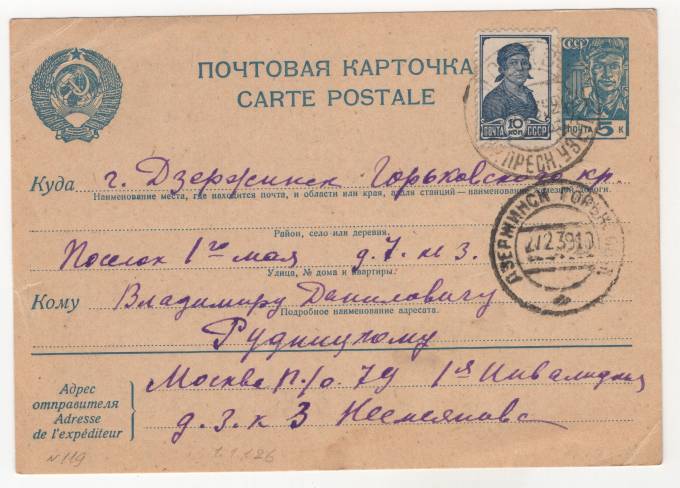 ПОЧТОВАЯ КАРТОЧКА
CARTE POSTALE
10 КОП
ПОЧТА СССР
СССР
ПОЧТА 5 К
Куда г. Дзержинск Горьковского кр.
Наименование места, где находится почта, и области или края, а для станций – наименование железной дороги.
ДЗЕРЖИНСК ГОРЬК
27 2 39 10
Район, село или деревня.
Поселок 1го мая д. 7. к 3.
Улица, № дома и квартиры.
Кому Владимиру Даниловичу
Подробное наименование адресата.
Рудницкому
Адрес отправителя
Adresse de l'expéditeur
Москва п/о. 79 1я Инвалидная
д. 3. к 3
N 119
1.1.126